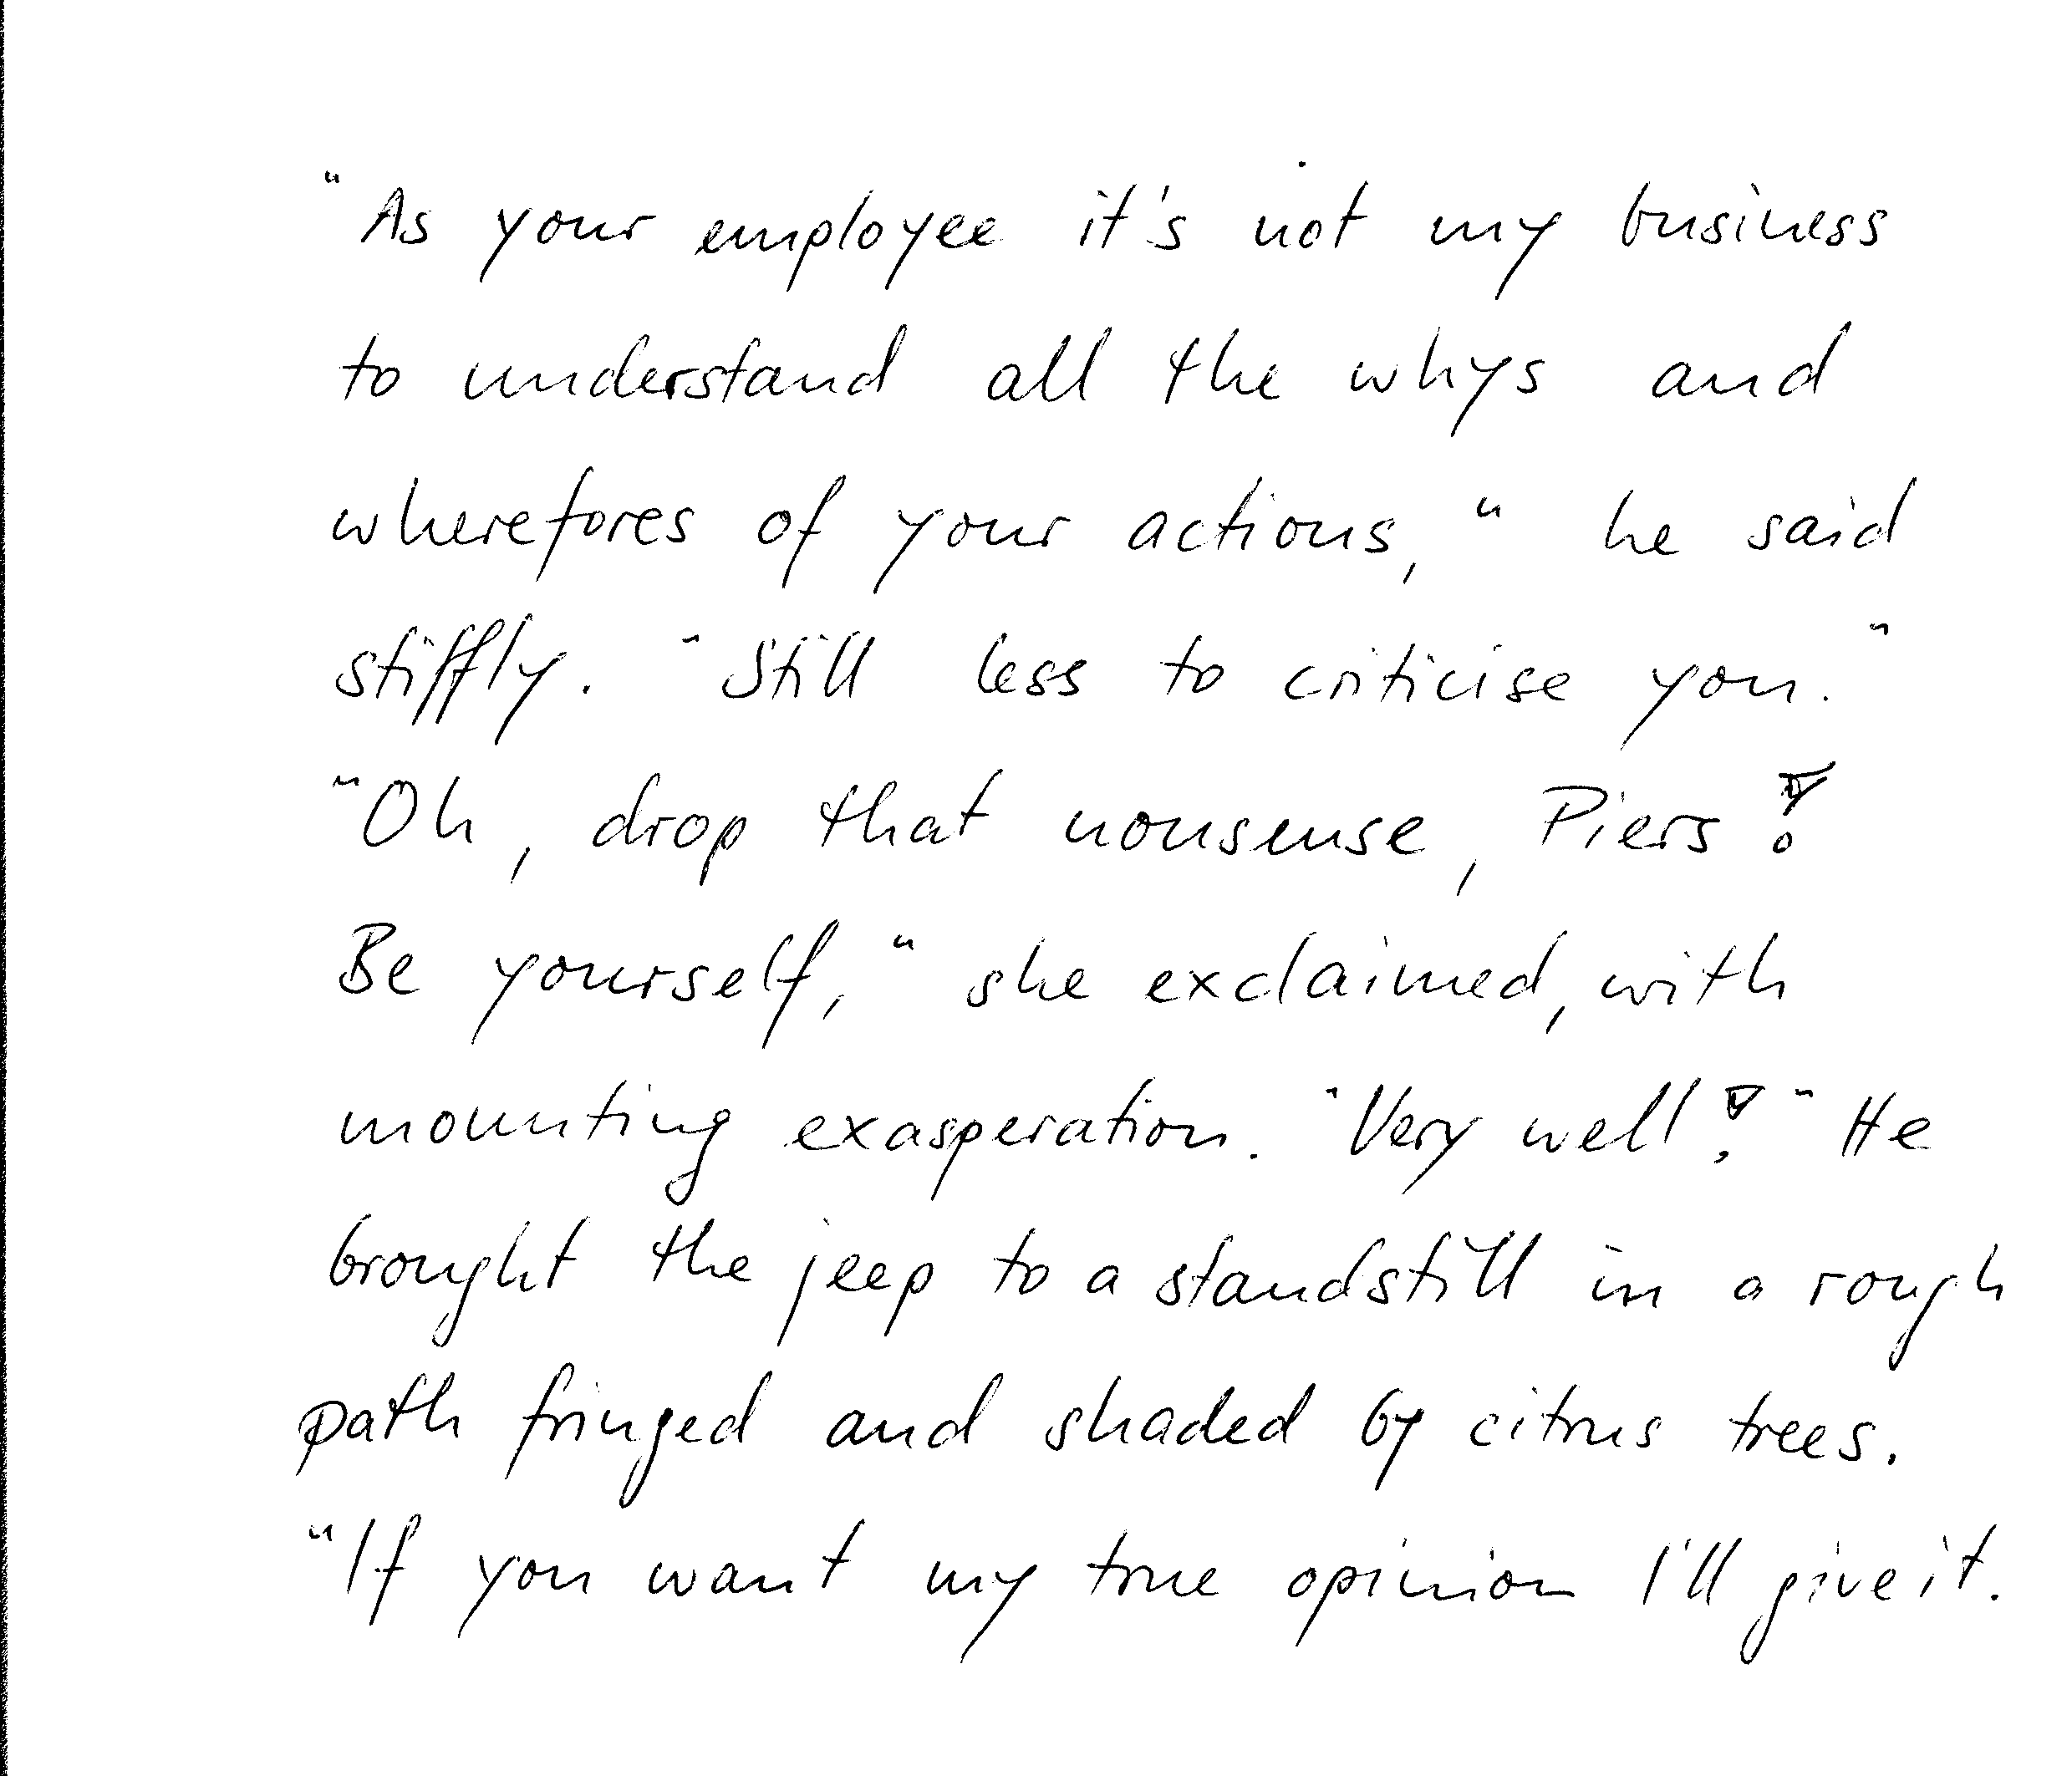 "As your employee it's not my business
to understand all the whys and
wherefores of your actions," he said
stiffly. "Still less to criticise you."
"Oh, drop that nonsense, Piers!
Be yourself," she exclaimed, with
mounting exasperation. "Very well!" He
brought the jeep to a standstill in a rough
path fringed and shaded by citrus trees.
"If you want my true opinion I'll give it.